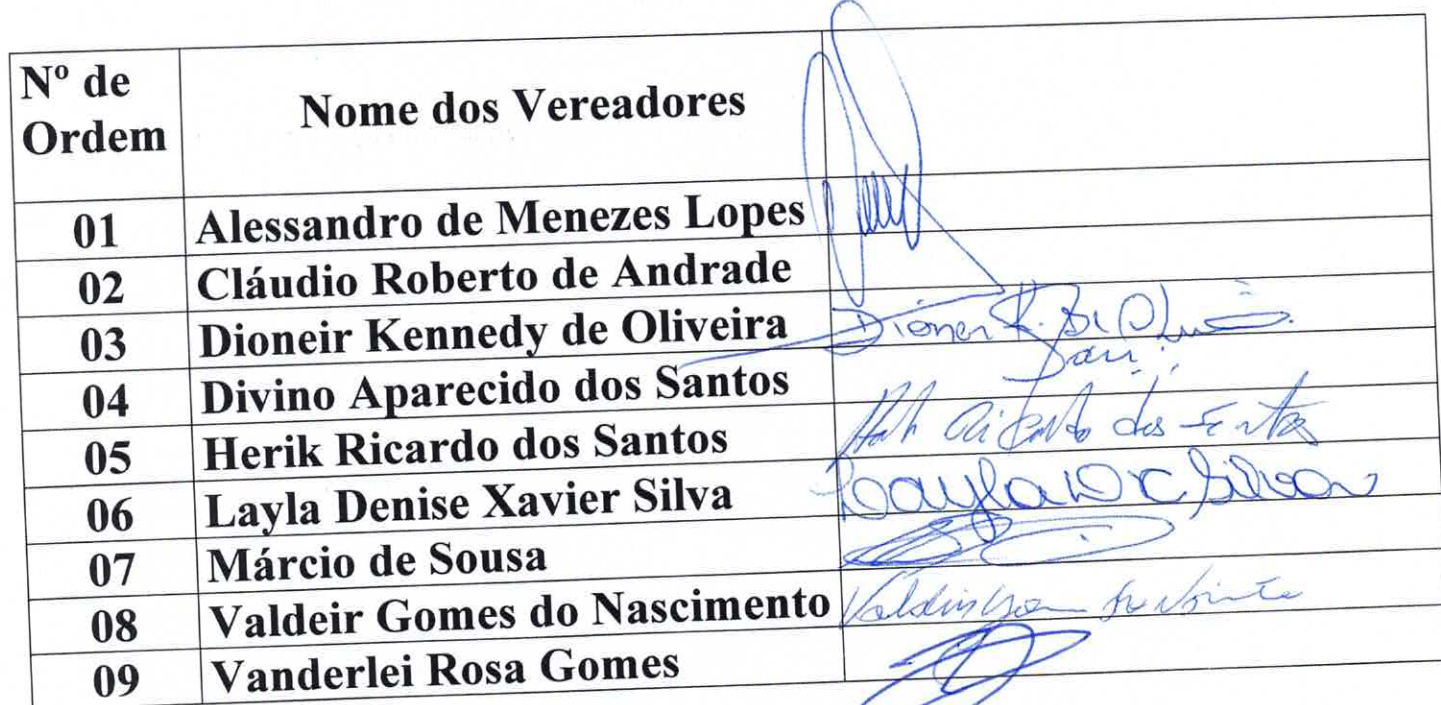 Nº de
Ordem
Nome dos Vereadores
01 Alessandro de Menezes Lopes
02 Cláudio Roberto de Andrade
03 Dioneir Kennedy de Oliveira Dioneir K. de Oliveira
04 Divino Aparecido dos Santos
05 Herik Ricardo dos Santos Ricardo dos Santos
06 Layla Denise Xavier Silva Layla D X Silva
07 Márcio de Sousa
08 Valdeir Gomes do Nascimento
09 Vanderlei Rosa Gomes